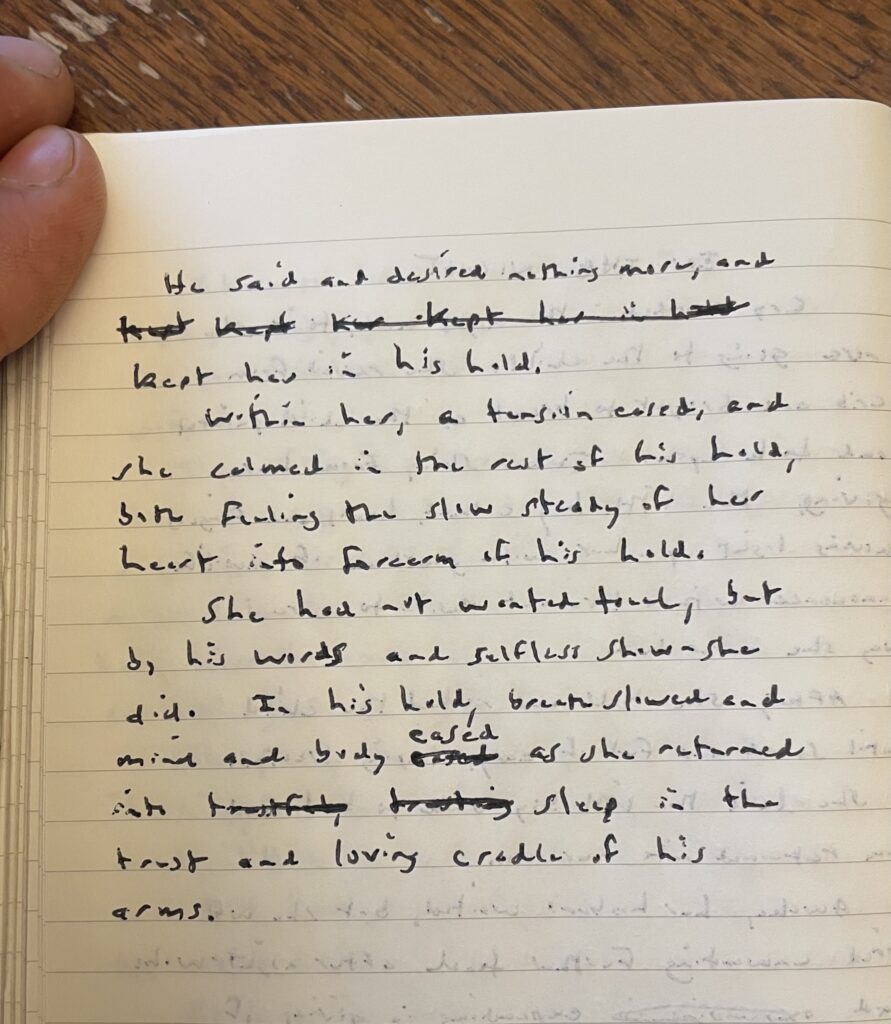 He said and desired nothing more, and
kept kept her kept her in hold
kept her in his hold.
Within her, a tension eased, and
she calmed in the rest of his hold,
both feeling the slow steady of her
heart into forearm of his hold.
She had not wanted touch, but
by his words and selfless show - she
did. In his hold, breath slowed and
eased
mind and body eased as she returned
into trustful, trusting sleep in the
trust and loving cradle of his
arms.